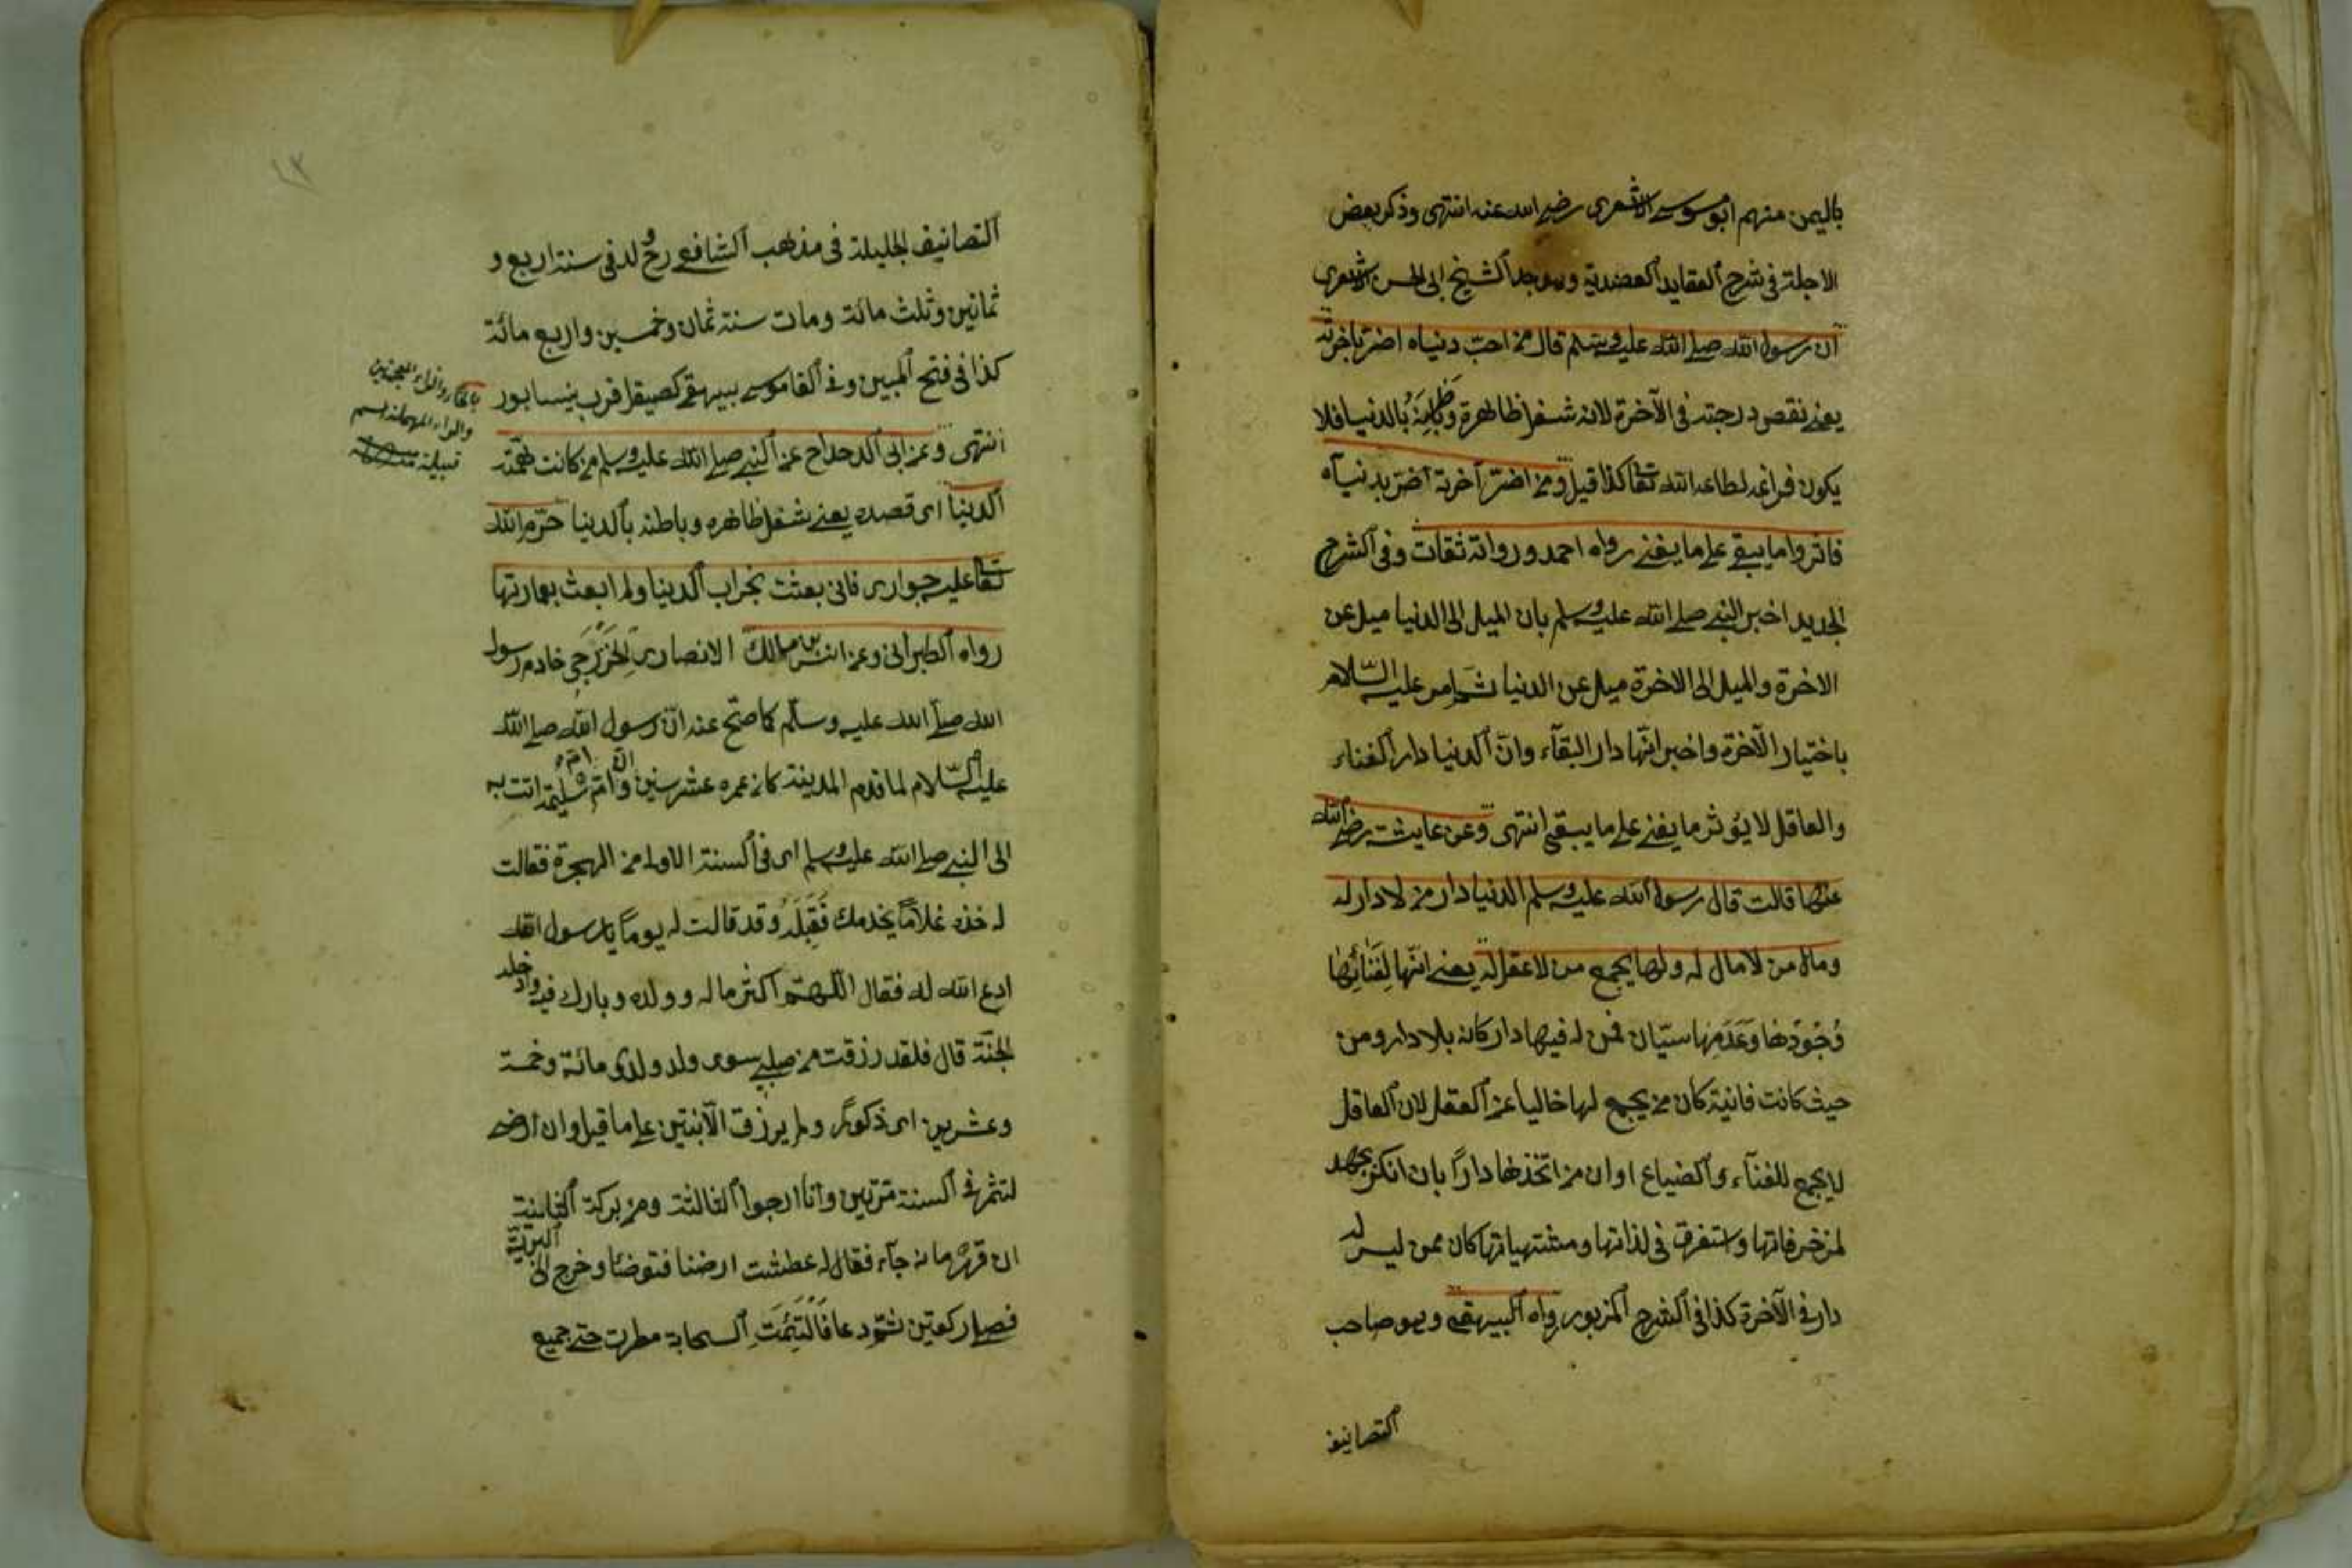 باليمن منهم ابو موسى الاشعرى رضى الله عنه انتهى وذكر بعض
الاجلة فى شرح العقايد العضدية وهو جد الشيخ ابى الحسن الاشعرى
ان رسول الله صلى الله عليه وسلم قال من احب دنياه اضر باخرته
يعنى نقص درجته فى الآخرة لانه شغل ظاهرة وَبَاطِنَهُ بالدنيا فلا
يكون فراغه لطاعة الله تعا كذا قيل ومن اضر آخرته اضر بدنياه
فاثروا ما يبقى على ما يفنى رواه احمد ورواته ثقات وفى الشرح
الجديد اخبر النبى صلى الله عليه وسلم بان الميل الى الدنيا ميل عن
الاخرة والميل الى الاخرة ميل عن الدنيا ثم امر عليه السّلام
باختيار الآخرة واخبر انّها دار البقآء وانّ الدنيا دار الفناء
والعاقل لا يؤثر ما يفنى على ما يبقى انتهى وعن عايشة رضى الله
عنها قالت قال رسول الله عليه وسلم الدنيا دار من لا دار له
ومال من لا مال له ولها يجمع من لا عقل له يعنى انّها لِفَنَائِهَا
وُجُودُهَا وَعَدَمُهَا سيّان فمن له فيها دار كانه بلا دار ومن
حيث كانت فانية كان من يجمع لها خاليا عن العقل لان العاقل
لا يجمع للفنآء والضياع او ان من اتخذها دارًا بان انكر بجهد
لمزخرفاتها واستغرق فى لذاتها ومشتهياتها كان ممن ليس له
دار فى الآخرة كذا فى الشرح المزبور رواه البيهقى وهو صاحب
التصانيف
١٣
التصانيف الجليلة فى مذهب الشافعى رح ولد فى سنة اربع و
ثمانين وثلث مائة ومات سنة ثمان وخمسين واربع مائة
كذا فى فتح المبين وفى القاموس بيهق كصيقل قرب نيسابور
انتهى وعن ابى الدحداح عن النبى صلى الله عليه وسلم من كانت همّته
الدنيا اى قصده يعنى شغل ظاهره وباطنه بالدنيا حرّم الله
تعا عليه جوارى فانى بعثت بخراب الدنيا ولم ابعث بعمارتها
رواه الطبرانى وعن انس بن مالك الانصارى الخَزْرَجِى خادم رسول
الله صلى الله عليه وسلم كما صحّ عنه انّ رسول الله صلى الله
عليه السّلام لما قدم المدينة كان عمره عشر سنين وان امّه امّ سُليم اتت به
الى النبى صلى الله عليه وسلم اى فى السنة الاولى من الهجرة فقالت
له خذه غلامًا يخدمك فَقَبِلَهُ وقد قالت له يومًا يا رسول الله
ادع الله له فقال اللهم اكثر ماله وولده وبارك فيه وادخله
الجنّة قال فلقد رزقت من صلبى سوى ولد ولدى مائة وخمسة
وعشرين اى ذكورًا ولم يرزق الّا بنتين على ما قيل وان ارضى
لتثمر فى السنة مرّتين وانا ارجوا الثالثة ومن بركة الثانية
ان قهرمانه جآء فقال له عطشت ارضنا فتوضا وخرج الى البرّيّة
فصلى ركعتين ثمّ دعا فَالْتَئَمَتِ السحابة مطرت حتى جميع
بالخاء والزاء المعجمتين
والراء المهملة اسم
قبيلة